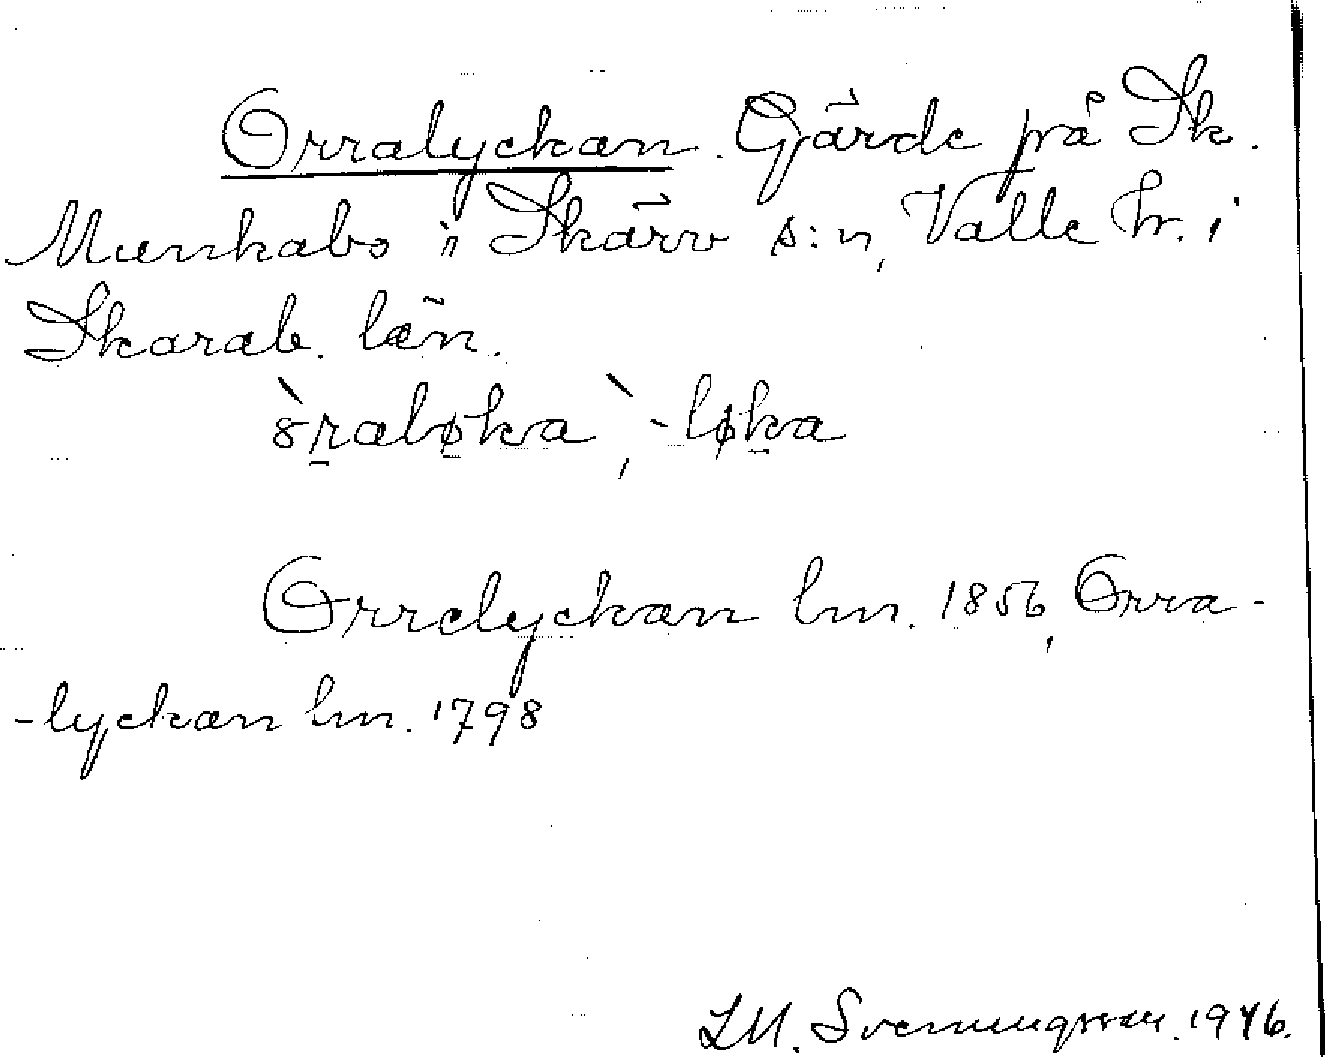 Orralyckan. Gärde på Sk.
Munkabo i Skärv s:n, Valle hr. i
Skarab. län.
òraløka, -løka
Orrelyckan lm. 1856, Orra-
-lyckan lm. 1798
LM. Svenungsson. 1946.